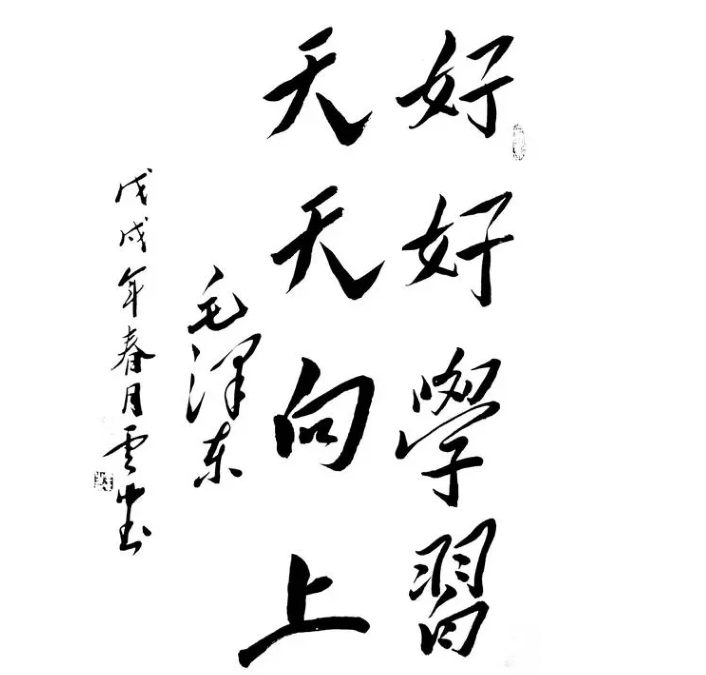 好好學習
天天向上
毛澤东
戊戌年春月雲中书